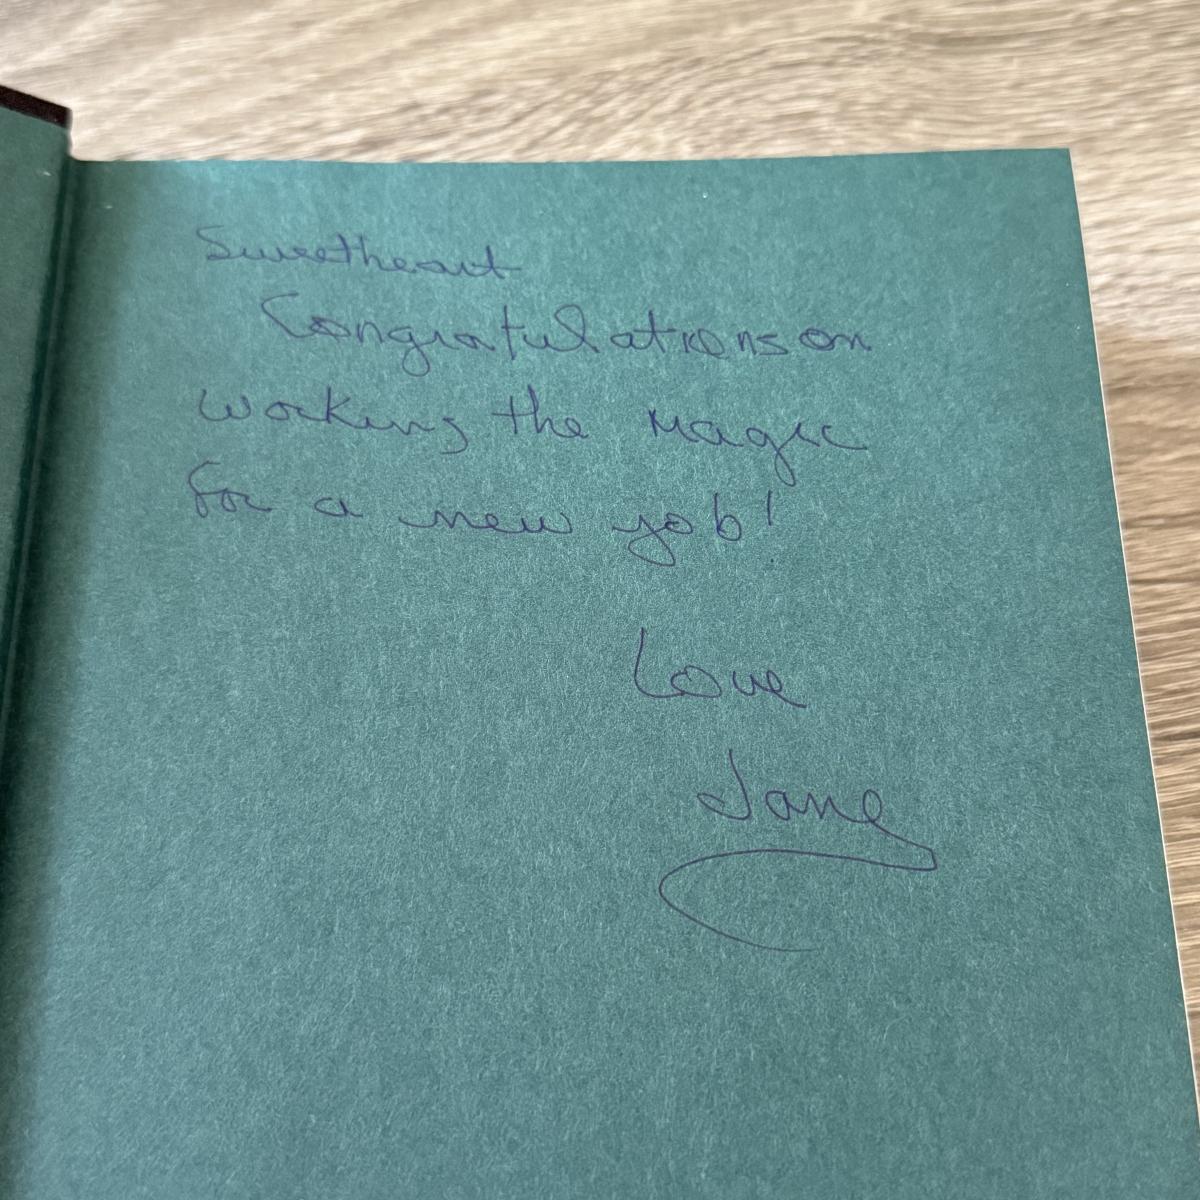 Sweetheart
Congratulations on
working the magic
for a new job!
Love
Jane